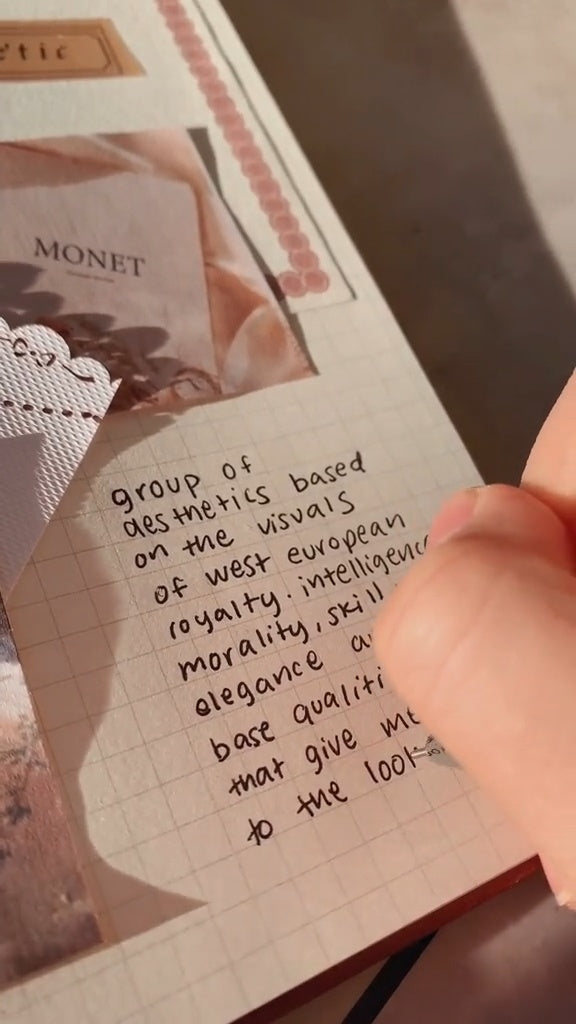 etic
MONET
group of
aesthetics based
on the visuals
of west european
royalty. intelligenc
morality, skill
elegance a
base qualiti
that give me
to the look